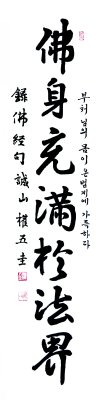 佛身充滿於法界
부처님의 몸이 온 법계에 가득하다
錄佛經句 誠山 權五圭